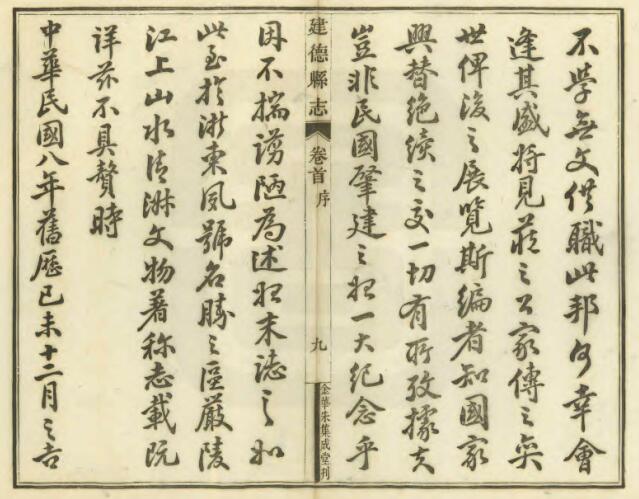 不學無文供職此邦何幸會
逢其盛將見藏之公家傳之奕
世俾後之展覽斯編者知國家
興替絶續之交一切有所攷據夫
豈非民國肇建之始一大紀念乎
建德縣志
卷首
序
九
金華朱集成堂刊
因不揣謭陋為述始末誌之如
此至於浙東夙號名勝之區嚴陵
江上山水清淑文物著称志載既
詳茲不具贅時
中華民國八年舊歷己未十二月之吉